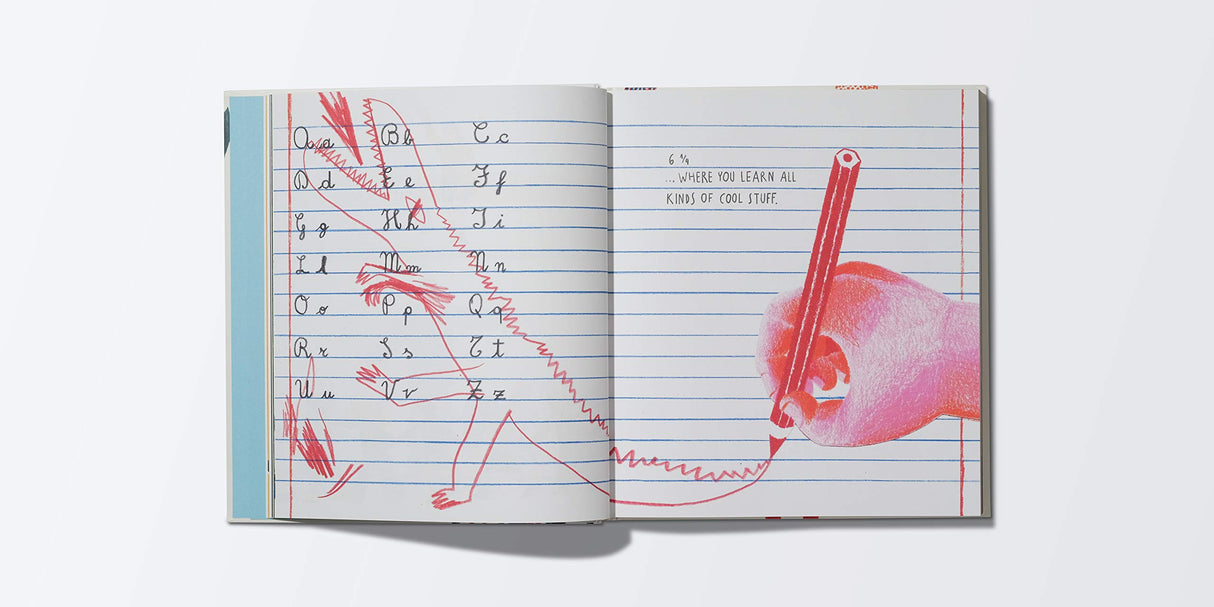 A a B b C c
D d E e F f
G g H h I i
L l M m N n
O o P p Q q
R r S s T t
U u V v Z z
6 ¾
... WHERE YOU LEARN ALL
KINDS OF COOL STUFF.